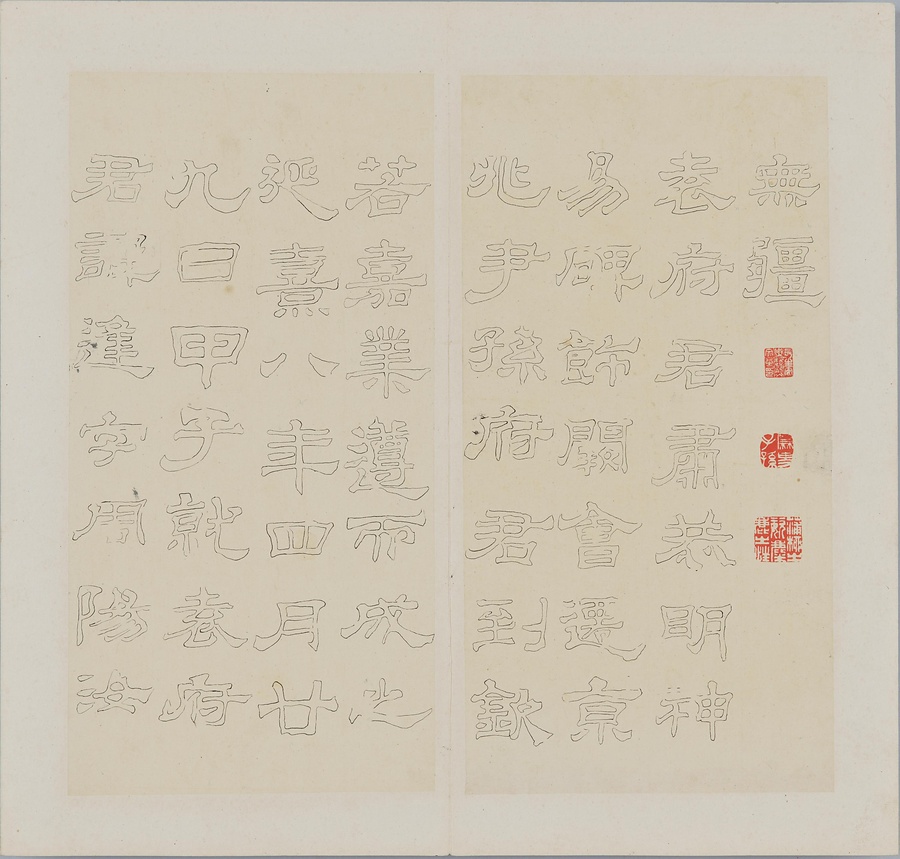 無疆
袁府君肅恭明神
易碑飾闕會遷京
兆尹孫府君到欽
若嘉業遵而成之
延熹八年四月廿
九日甲子就袁府
君諱逢字周陽汝